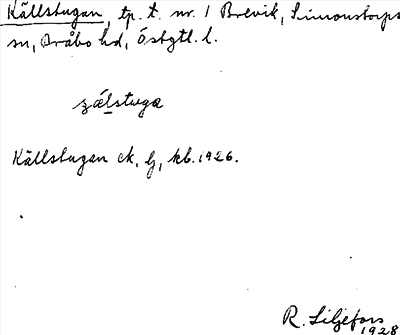 Källstugan, tp. t. nr. 1 Brevik, Simonstorps
sn, Bråbo hd, Östgtl. l.
sälstuga
Källstugan ek, lj, kb. 1926.
R. Liljefors
1928